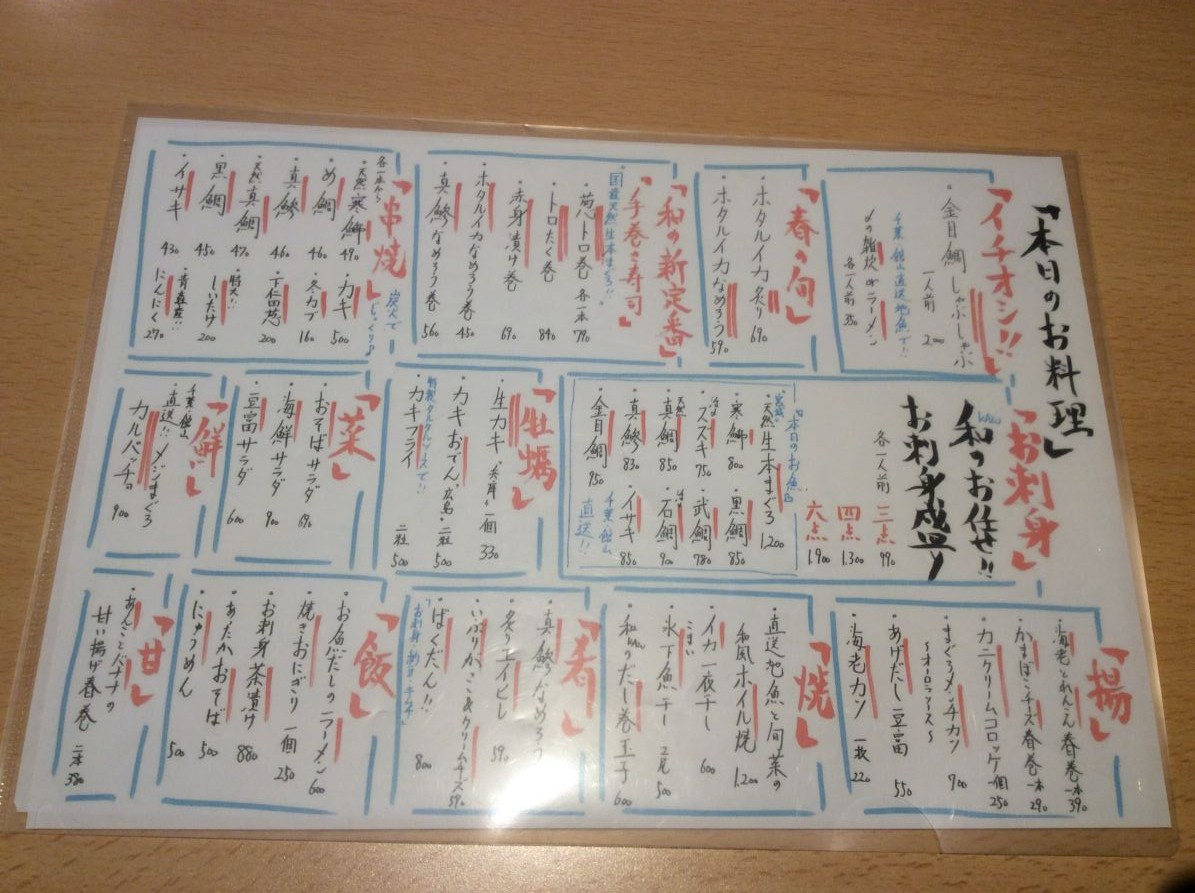 「本日のお料理」
「イチオシ!!」
金目鯛しゃぶしゃぶ
一人前
千葉・館山直送地魚で!!
〆の雑炊 orラーメン
各一人前 350
「春の旬」
・ホタルイカ炙り 690
・ホタルイカなめろう 590
「和の新定番」
「手巻き寿司」
・国産天然生本まぐろ!!
・葱トロ巻 各一本 790
・トロたく巻 840
・赤身漬け巻 690
・ホタルイカなめろう巻 450
・真鯵なめろう巻 560
「串焼」
炭火でじっくり
各一本から
・天然寒鰤 490
・め鯛 460
・真鯵 460
・天然真鯛 470
・黒鯛 450
・イサキ 430
・カキ 500
・冬カブ 160
・下仁田葱 200
・特大!!しいたけ 200
・青森産!!にんにく 270
「お刺身」
和のお任せ!!
お刺身盛り
各一人前
三点 990
四点 1.300
六点 1.900
『本日のお魚』
・天然生本まぐろ 1.200
・寒鰤 800
・黒鯛 850
・スズキ 750
・武鯛 780
・天然真鯛 850
・石鯛 900
・真鯵 830
・イサキ 850
・金目鯛 950
千葉・館山直送!!
「牡蠣」
・生カキ 一個 330
・カキおでん 広島・二粒 500
特製タルタルソースで!!
・カキフライ 二粒 500
「菜」
・おそばサラダ 690
・海鮮サラダ 900
・豆富サラダ 600
「鮮」
千葉・館山
・直送!!メジまぐろ
カルパッチョ 900
「揚」
・海老とれんこん春巻 一本 390
・かまぼこチーズ春巻 一本 290
・カニクリームコロッケ 一個 250
・まぐろメンチカツ 700
～オーロラソース～
・あげだし豆富 550
・海老カツ 一枚 220
「焼」
・直送地魚と旬菜の
和風ホイル焼 1.200
・イカ一夜干し 600
・氷下魚干し 2尾 500
こまい
・和のだし巻玉子 600
「肴」
・真鯵なめろう
・炙りエイヒレ 590
・いぶりがっこ&クリームチーズ 590
・ばくだん!! 800
「飯」
・お魚だしのラーメン 600
・焼きおにぎり 一個 250
・お刺身茶漬け 880
・あったかおそば 500
・にゅうめん 500
「甘」
・あんことバナナの
甘い揚げ春巻 二本 380